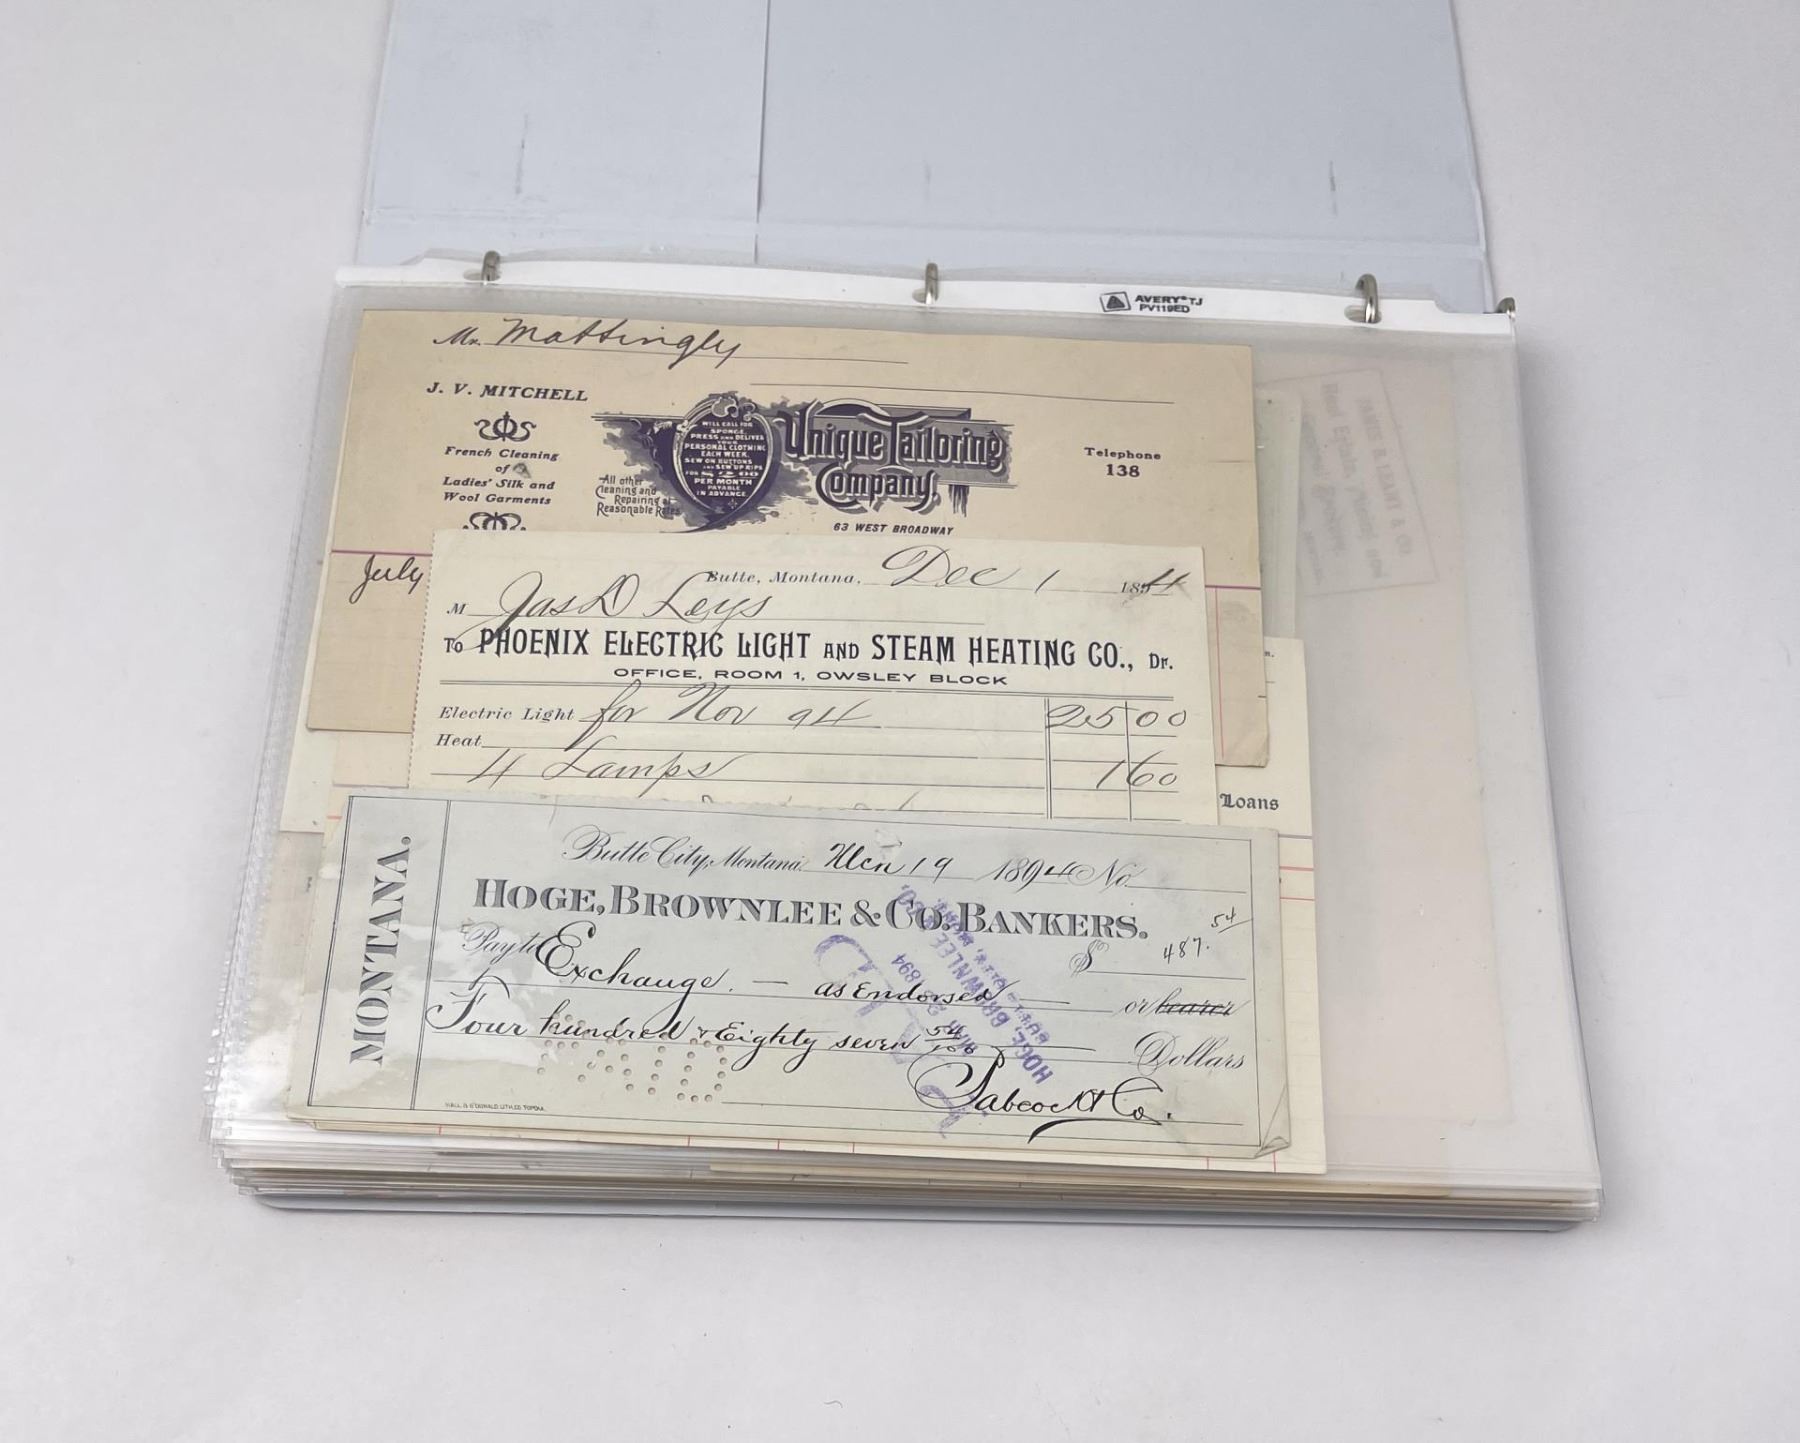 AVERY® TJ
PV119ED
Mr. Mattingly
J. V. MITCHELL
French Cleaning
of
Ladies' Silk and
Wool Garments
WILL CALL FOR
SPONGE,
PRESS AND DELIVER
YOUR
PERSONAL CLOTHING
EACH WEEK.
SEW ON BUTTONS
AND SEW UP RIPS
FOR $2.00
PER MONTH
PAYABLE
IN ADVANCE.
All other
Cleaning and
Repairing at
Reasonable Rates
Unique Tailoring
Company,
63 WEST BROADWAY
Telephone
138
July
Butte, Montana, Dec 1 1894
M Jas D Leys
To PHOENIX ELECTRIC LIGHT AND STEAM HEATING CO., Dr.
OFFICE, ROOM 1, OWSLEY BLOCK
Electric Light for Nov 94 25 00
Heat
4 Lamps 1 60
Loans
MONTANA.
Butte City, Montana, 19 1894 No
HOGE, BROWNLEE & CO. BANKERS.
Pay to Exchange. — as Endorsed — or bearer
$ 487.54
Four hundred & Eighty seven 54/100 Dollars
Babcock & Co.
HOGE, BROWNLEE & CO.
1894
PAID
HALL & O'DONALD LITH. CO. TOPEKA.